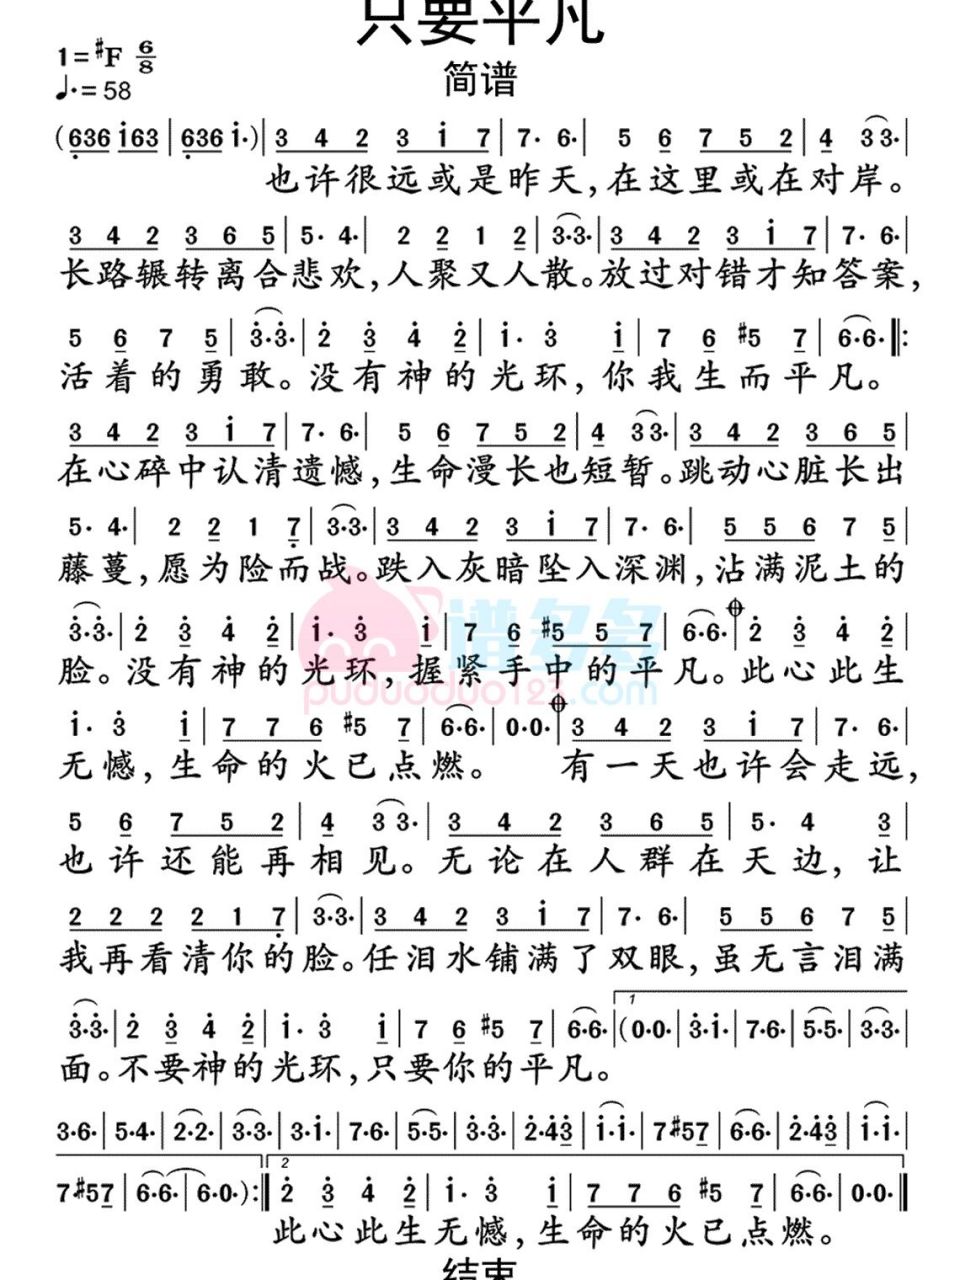 只要平凡
1=#F 6/8
简谱
♩.=58
(636 i63|636 i·)|3 4 2 3 i 7|7· 6·|5 6 7 5 2|4 3 3·|
也许很远或是昨天,在这里或在对岸。
3 4 2 3 6 5|5· 4·|2 2 1 2|3·3·|3 4 2 3 i 7|7· 6·|
长路辗转离合悲欢,人聚又人散。放过对错才知答案,
5 6 7 5|3·3·|2 3 4 2|i· 3 i|7 6 #5 7|6·6·‖:
活着的勇敢。没有神的光环,你我生而平凡。
3 4 2 3 i 7|7· 6·|5 6 7 5 2|4 3 3·|3 4 2 3 6 5|
在心碎中认清遗憾,生命漫长也短暂。跳动心脏长出
5· 4·|2 2 1 7|3·3·|3 4 2 3 i 7|7· 6·|5 5 6 7 5|
藤蔓,愿为险而战。跌入灰暗坠入深渊,沾满泥土的
3·3·|2 3 4 2|i· 3 i|7 6 #5 5 7|6·6·|2 3 4 2|
脸。没有神的光环,握紧手中的平凡。此心此生
谱多多
puduoduo123.com
i· 3 i|7 7 6 #5 7|6·6·|0·0·|3 4 2 3 i 7|7· 6·|
无憾,生命的火已点燃。 有一天也许会走远,
5 6 7 5 2|4 3 3·|3 4 2 3 6 5|5· 4 3|
也许还能再相见。无论在人群在天边,让
2 2 2 2 1 7|3·3·|3 4 2 3 i 7|7· 6·|5 5 6 7 5|
我再看清你的脸。任泪水铺满了双眼,虽无言泪满
1
3·3·|2 3 4 2|i· 3 i|7 6 #5 7|6·6·|(0·0·|3·i·|7·6·|5·5·|3·3·|
面。不要神的光环,只要你的平凡。
3·6·|5·4·|2·2·|3·3·|3·i·|7·6·|5·5·|3·3·|2·43|i·i·|7#57|6·6·|2·43|i·i·|
2
7#57|6·6·|6·0·):‖2 3 4 2|i· 3 i|7 7 6 #5 7|6·6·|0·0·‖
此心此生无憾,生命的火已点燃。
结束